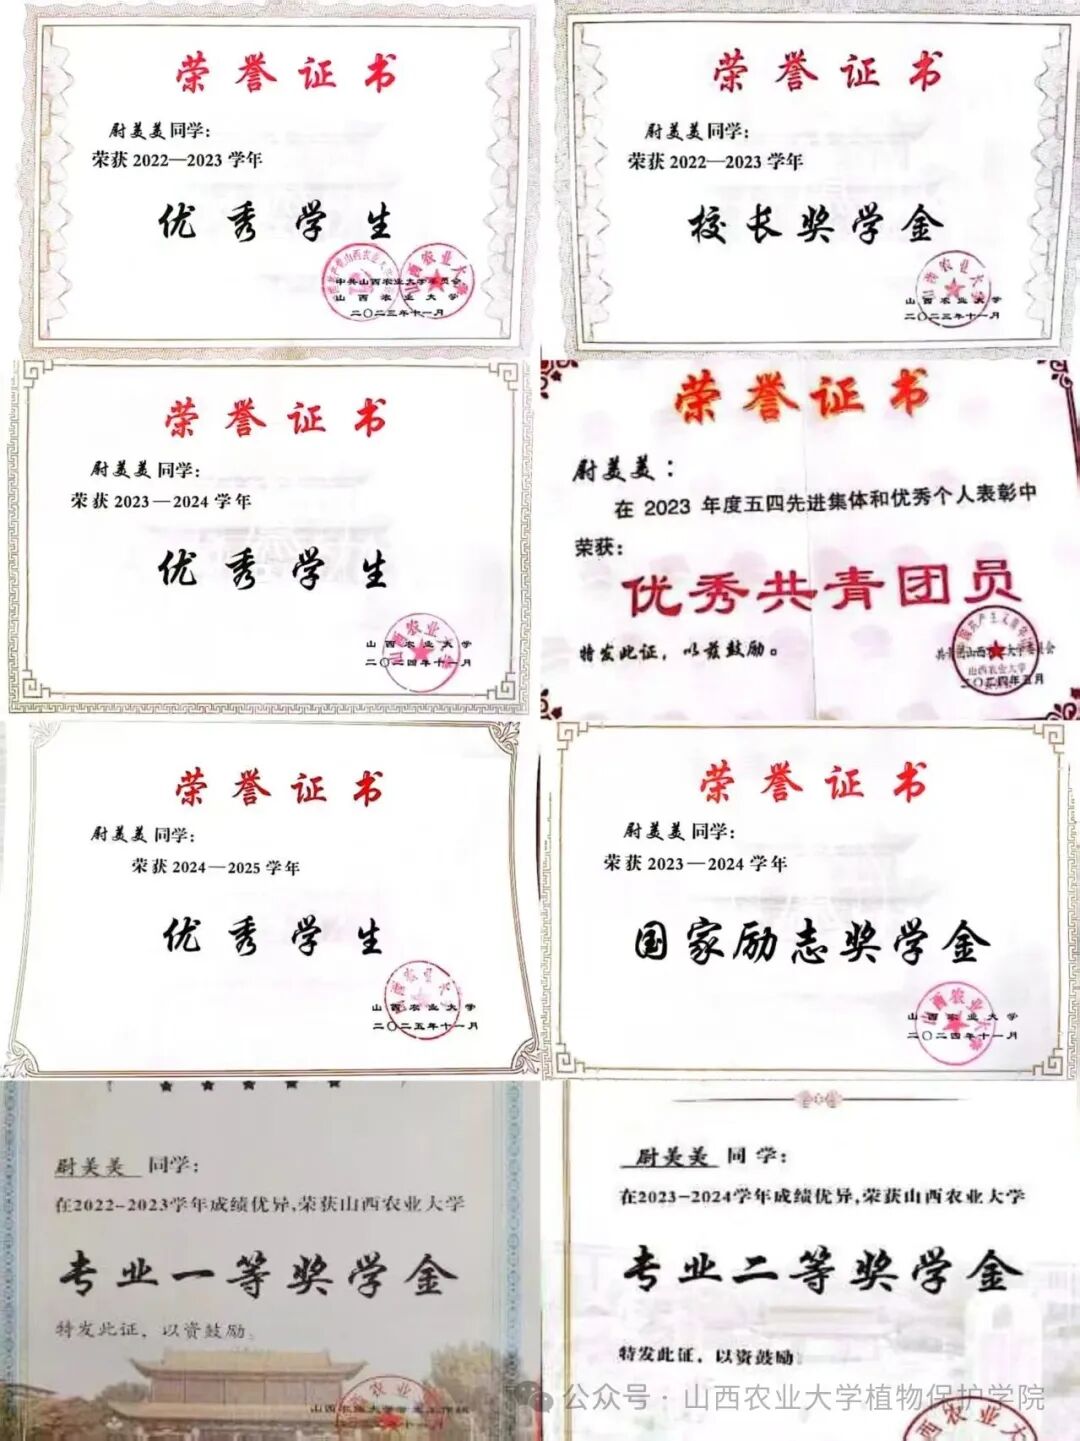 荣誉证书
尉美美同学：
荣获 2022—2023 学年
优秀学生
中共山西农业大学委员会
山西农业大学
二〇二三年十一月
荣誉证书
尉美美同学：
荣获 2022—2023 学年
校长奖学金
山西农业大学
二〇二三年十一月
荣誉证书
尉美美同学：
荣获 2023—2024 学年
优秀学生
山西农业大学
二〇二四年十一月
荣誉证书
尉美美：
在 2023 年度五四先进集体和优秀个人表彰中
荣获：
优秀共青团员
特发此证，以兹鼓励。
共青团山西农业大学委员会
二〇二四年五月
荣誉证书
尉美美同学：
荣获 2024—2025 学年
优秀学生
山西农业大学
二〇二五年十一月
荣誉证书
尉美美同学：
荣获 2023—2024 学年
国家励志奖学金
山西农业大学
二〇二四年十一月
尉美美 同学：
在2022-2023学年成绩优异,荣获山西农业大学
专业一等奖学金
特发此证，以资鼓励。
山西农业大学
尉美美 同学：
在2023-2024学年成绩优异,荣获山西农业大学
专业二等奖学金
特发此证，以资鼓励
公众号：山西农业大学植物保护学院
西农业大